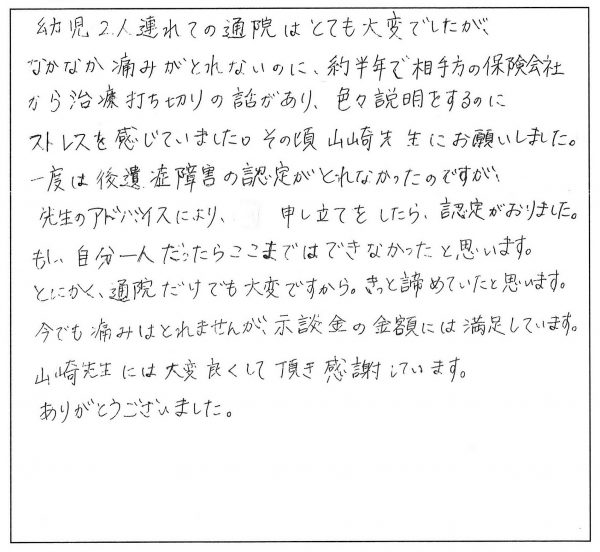 幼児2人連れての通院はとても大変でしたが、
なかなか痛みがとれないのに、約半年で相手方の保険会社
から治療打ち切りの話があり、色々説明をするのに
ストレスを感じていました。その頃山崎先生にお願いしました。
一度は後遺症障害の認定がとれなかったのですが、
先生のアドバイスにより、 申し立てをしたら、認定がおりました。
もし、自分一人だったらここまではできなかったと思います。
とにかく、通院だけでも大変ですから。きっと諦めていたと思います。
今でも痛みはとれませんが、示談金の金額には満足しています。
山崎先生には大変良くして頂き感謝しています。
ありがとうございました。